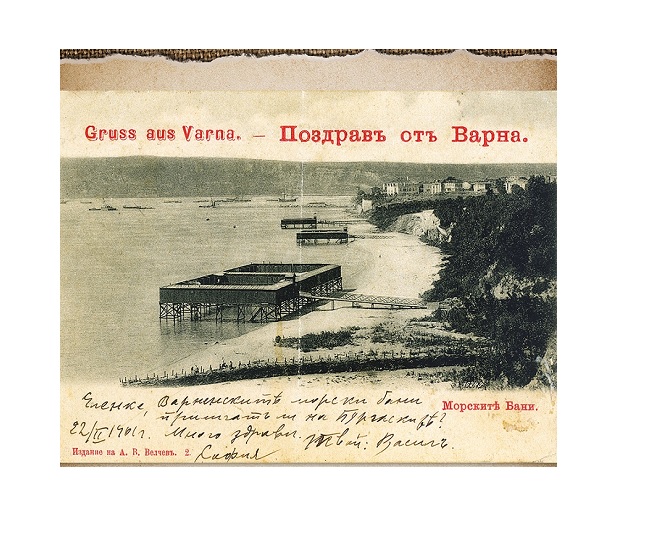 Gruss aus Varna. — Поздравъ отъ Варна.
Еленке, Варненскитѣ морски бани
приличатъ ли на Бургаскитѣ?
Морскитѣ Бани.
22/II 1901г. Много здраве. Твой: Василъ.
Издание на А. В. Велчевъ. 2.
София.